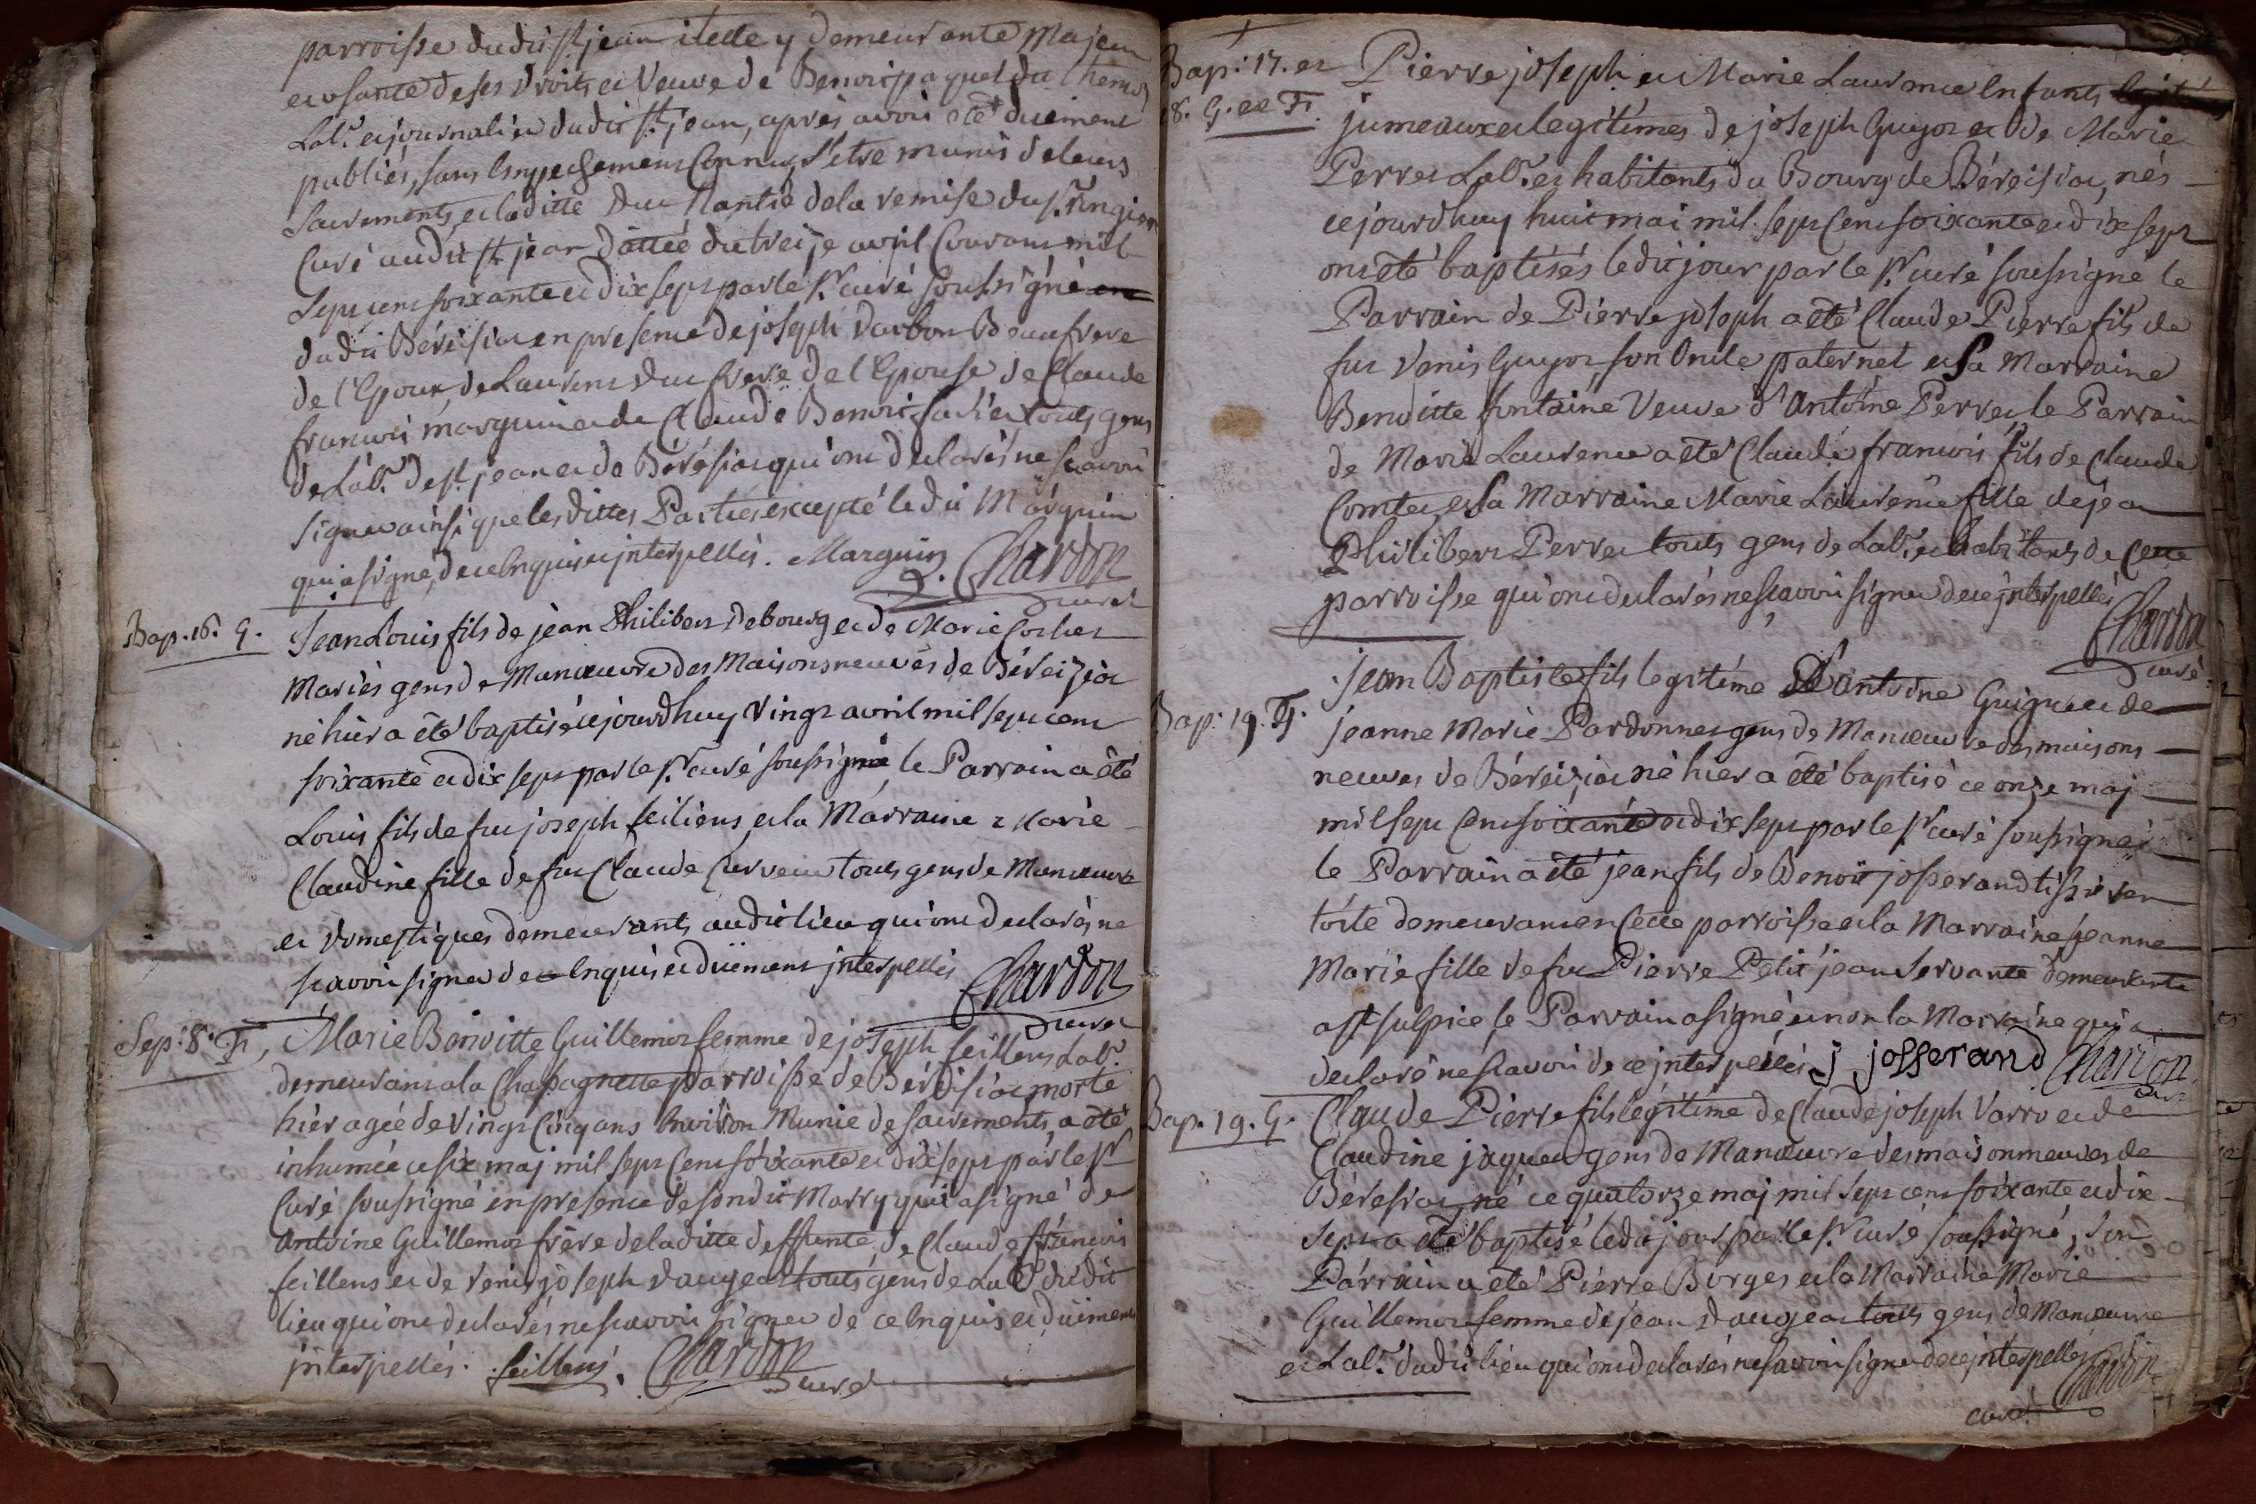 parroisse dudit St jean icelle y demeurante Majeur
et usante de ses droits et Veuve de Benoit paquet du
Labr. et journalier dudit St jean, après avoir été duement
publiés, sans Empechement Connu, s'etre munis de leurs
sacrements, et laditte Duc Nantie de la remise du Sr
Curé audit St jean dattée du treize avril Courant mil
Sept cent soixante et dix sept par le Sr curé soussigné
dudit Bérésiat en presence de joseph Darbon Beaufrere
de l'Epoux, de Laurent Duc frere de l'Epouse de Claude
francois marguin et de Claude Benoit tous gens
de Labr. de St jean et de Bérésiat qui ont declarés ne scavoir
signer ainsi que lesdittes Parties excepté ledit Marguin
qui a signé, de ce Enquis et interpellés. Marguin. Chardon
curé
Bap. 16. G. Jean Louis fils de jean Philibert Debourg et de Marie Cochet
Mariés gens de Manœuvre des Maisons neuves de Béreizia
né hier a été baptisé cejourdhuy Vingt avril mil sept cent
soixante et dix sept par le Sr curé soussigné le Parrain a été
Louis fils de feu joseph feiliens et la Marraine Marie
Claudine fille de feu Claude Curveur tous gens de Manœuvre
et Domestiques demeurants audit lieu qui ont declarés ne
scavoir signer de ce Enquis et duement jnterpellés Chardon
curé
Sep. 8. F. Marie Benoitte Guillemot femme de joseph feillens Labr.
demeurant a la Chapagnette parroisse de Bérésiat morte
hier agée de Vingt Cinq ans Environ Munie de sacrements, a été
inhumée ce six maj mil sept Cent soixante et dix sept par le Sr
Curé soussigné en presence de sondit Marry qui a signé de
Antoine Guillemot frère de laditte deffunte, de Claude francois
feillens et de Denis joseph Daujeat tous gens de Labr. dudit
lieu qui ont declarés ne scavoir signer de ce Enquis et duement
jnterpellés. feillens. Chardon
curé
Bap. 17. et Pierre joseph et Marie Laurence Enfants
18. G. et F. jumeaux et legitimes de joseph Guyot et de Marie
Perret Labr. et habitants du Bourg de Béreisia, nés
cejourdhuy huit mai mil sept Cent soixante et dix sept
ont été baptisés ledit jour par le Sr curé soussigné le
Parrain de Pierre joseph a été Claude Pierre fils de
feu Denis Guyot son Oncle paternel et sa Marraine
Benoitte fontaine Veuve d'Antoine Perret le Parrain
de Marie Laurence a été Claude francois fils de Claude
Comtet, et sa Marraine Marie Laurence fille de jean
Philibert Perret tous gens de Labr. et habitants de Cette
parroisse qui ont declarés ne scavoir signer de ce jnterpellés
Chardon
curé
Jean Baptiste fils legitime D'antoine Guiguet et de
Bap. 19. G. jeanne Marie Pardonnet gens de Manœuvre des maisons
neuves de Béreizia né hier a été baptisé ce onze maj
mil sept Cent soixante et dix sept par le Sr curé soussigné
le Parrain a été jean fils de Benoit josserand tissier en
toile demeurant en Cette parroisse et la Marraine jeanne
Marie fille de feu Pierre Petit jean servante demeurante
a St sulpice le Parrain a signé et non la Marraine qui a
declaré ne scavoir de ce jnterpellés j josserand Chardon
curé
Bap. 19. G. Claude Pierre fils légitime de Claude joseph Varro et de
Claudine jaquet gens de Manœuvre des maisonneuves de
Béresiat, né ce quatorze maj mil sept cent soixante et dix
sept a été baptisé ledit jour par le Sr curé soussigné, son
Parrain a été Pierre Borges et la Marraine Marie
Guillemot femme de jean Daujeat tous gens de Manœuvre
et Labr. dudit lieu qui ont declarés ne scavoir signer de ce jnterpellés Chardon
curé